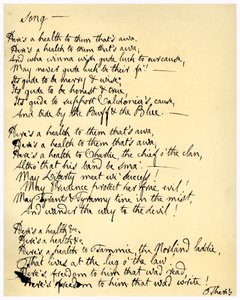 Song —
Here's a health to them that's awa,
Here's a health to them that's awa,
And wha winna wish gude luck to our cause,
May never gude luck be their fa'! —
Its gude to be merry & wise
Its gude to be honest & true
Its gude to support Caledonia's cause,
And bide by the Buff & the Blue. —
Here's a health to them that's awa,
Here's a health to them that's awa,
Here's a health to Charlie, the chief o' the clan,
Altho' that his band be sma'!
May Liberty meet wi' success
May Prudence protect her frae evil!
May Tyrants & Tyranny tine in the mist,
And wander the way to the devil!
Here's a health &c
Here's a health &c
Here's a health to Tammie, the Norland laddie,
That lives at the lug o' the law.
Here's freedom to him that wad read,
Here's freedom to him that wad write!